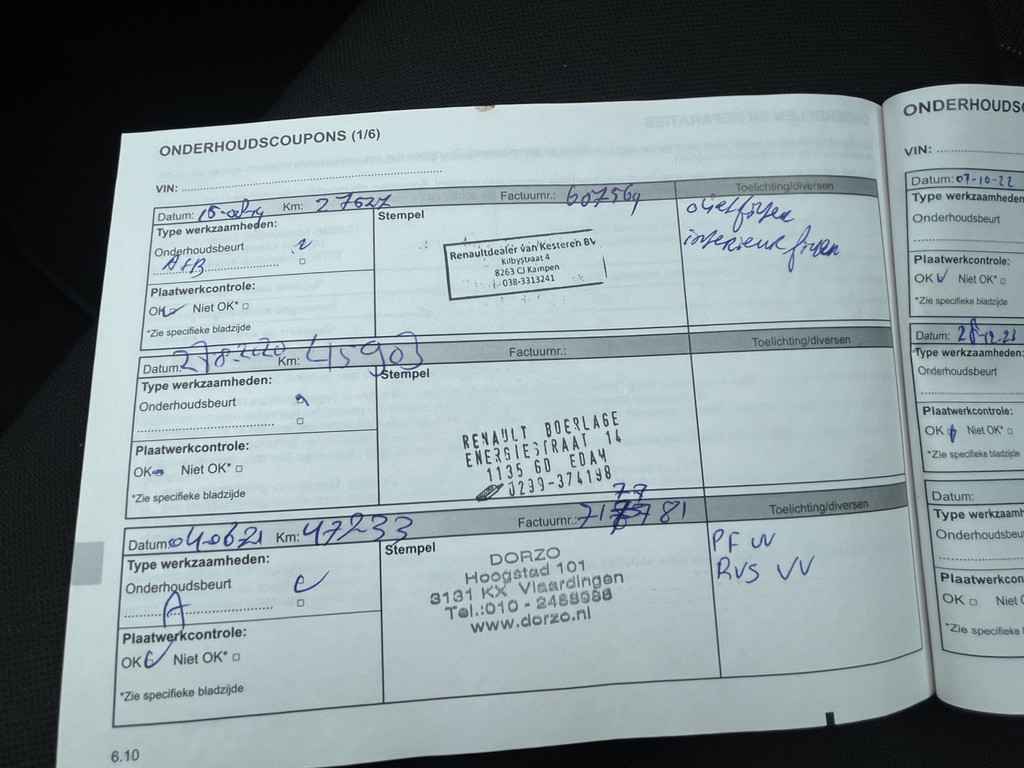 ONDERHOUDSCOUPONS (1/6)
VIN:
Datum: Km: 27627 Factuurnr.: 607569 Toelichting/diversen
Type werkzaamheden: Stempel
Onderhoudsbeurt
A+B
oliefilter
interieur
Renaultdealer van Kesteren BV
Kilbystraat 4
8263 CJ Kampen
038-3313241
Plaatwerkcontrole:
OK Niet OK*
*Zie specifieke bladzijde
Datum: 278.2020 Km: 45903 Factuurnr.: Toelichting/diversen
Type werkzaamheden: Stempel
Onderhoudsbeurt
RENAULT BOERLAGE
ENERGIESTRAAT 14
1135 GD EDAM
0299-374198
Plaatwerkcontrole:
OK Niet OK*
*Zie specifieke bladzijde
Datum: 040621 Km: 47233 Factuurnr.: Toelichting/diversen
Type werkzaamheden: Stempel
Onderhoudsbeurt
A
DORZO
Hoogstad 101
3131 KX Vlaardingen
Tel.:010 - 2488988
www.dorzo.nl
PF VV
RVS VV
Plaatwerkcontrole:
OK Niet OK*
*Zie specifieke bladzijde
6.10
ONDERHOUDSC
VIN:
Datum: 07-10-22
Type werkzaamheden:
Onderhoudsbeurt
Plaatwerkcontrole:
OK Niet OK*
*Zie specifieke bladzijde
Datum: 28.12.23
Type werkzaamheden:
Onderhoudsbeurt
Plaatwerkcontrole:
OK Niet OK*
*Zie specifieke bladzijde
Datum:
Type werkzaamh
Onderhoudsbeu
Plaatwerkcon
OK Niet
*Zie specifieke